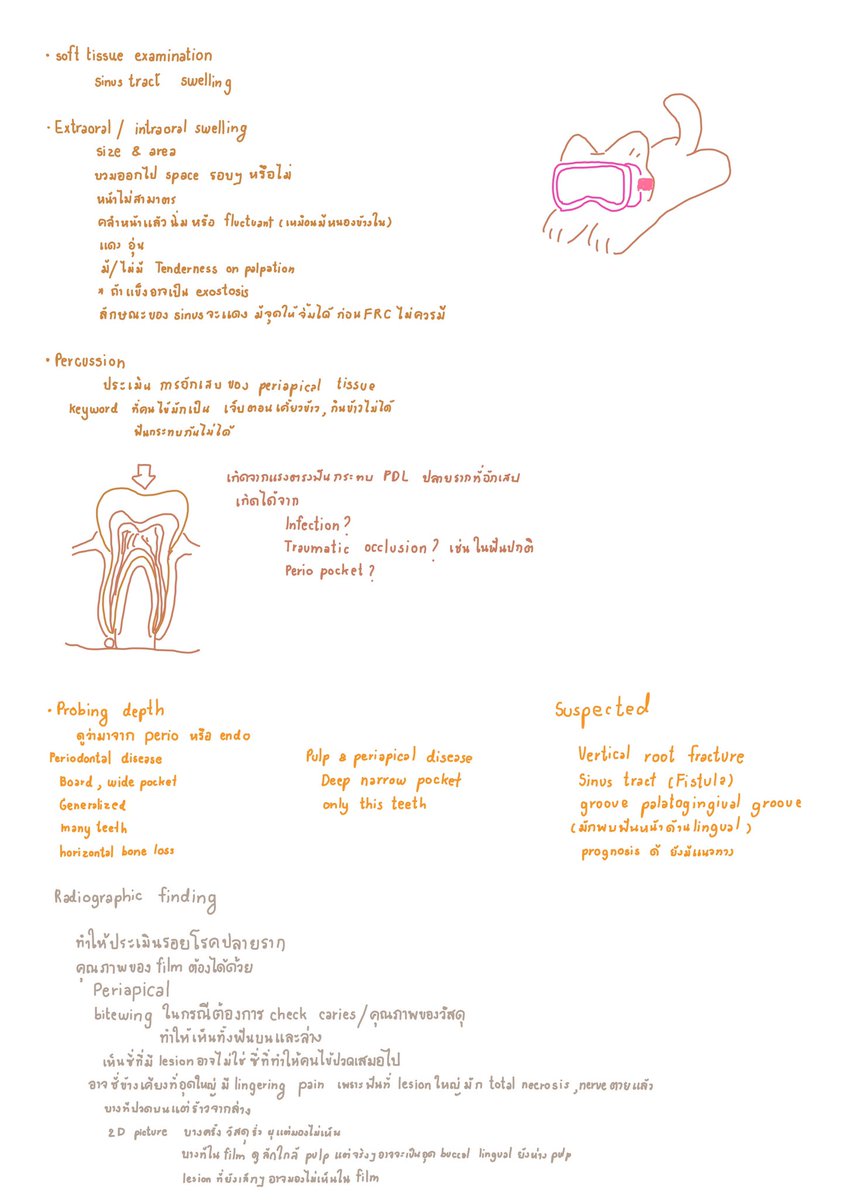 · soft tissue examination
sinus tract swelling
· Extraoral / intraoral swelling
size & area
บวมออกไป space รอบๆ หรือไม่
หน้าไม่สามาตร
คลำหน้าแล้ว นิ่ม หรือ fluctuant (เหมือนมีหนองข้างใน)
แดง อุ่น
มี/ไม่มี Tenderness on palpation
* ถ้าแข็งอาจเป็น exostosis
ลักษณะของ sinus จะแดง มีจุดให้จิ้มได้ ก่อน FRC ไม่ควรมี
· Percussion
ประเมิน การอักเสบ ของ periapical tissue
keyword ที่คนไข้มักเป็น เจ็บตอนเคี้ยวข้าว, กินข้าวไม่ได้
ฟันกระทบกันไม่ได้
เกิดจากแรงตรงฟันกระทบ PDL ปลายรากที่อักเสบ
เกิดได้จาก
Infection?
Traumatic occlusion? เช่น ในฟันปกติ
Perio pocket?
· Probing depth
ดูว่ามาจาก perio หรือ endo
Periodontal disease
Board, wide pocket
Generalized
many teeth
horizontal bone loss
Pulp & periapical disease
Deep narrow pocket
only this teeth
Suspected
Vertical root fracture
Sinus tract (Fistula)
groove palatogingival groove
(มักพบฟันหน้าด้าน lingual)
prognosis ดี ยังมีแนวทาง
Radiographic finding
ทำให้ประเมินรอยโรคปลายราก
คุณภาพของ film ต้องได้ด้วย
Periapical
bitewing ในกรณีต้องการ check caries/คุณภาพของวัสดุ
ทำให้เห็นทั้งฟันบนและล่าง
เห็นซี่ที่มี lesion อาจไม่ใช่ ซี่ที่ทำให้คนไข้ปวดเสมอไป
อาจ ซี่ข้างเคียงที่อุดใหญ่ มี lingering pain เพราะฟันที่ lesion ใหญ่ มัก total necrosis, nerve ตายแล้ว
บางทีปวดบนแต่ร้าวจากล่าง
2D picture บางครั้ง วัสดุรั่ว ผุแต่มองไม่เห็น
บางทีใน film ดูลึกใกล้ pulp แต่จริงๆ อาจจะเป็นอุด buccal lingual ยังห่าง pulp
lesion ที่ยังเล็กๆ อาจมองไม่เห็นใน film